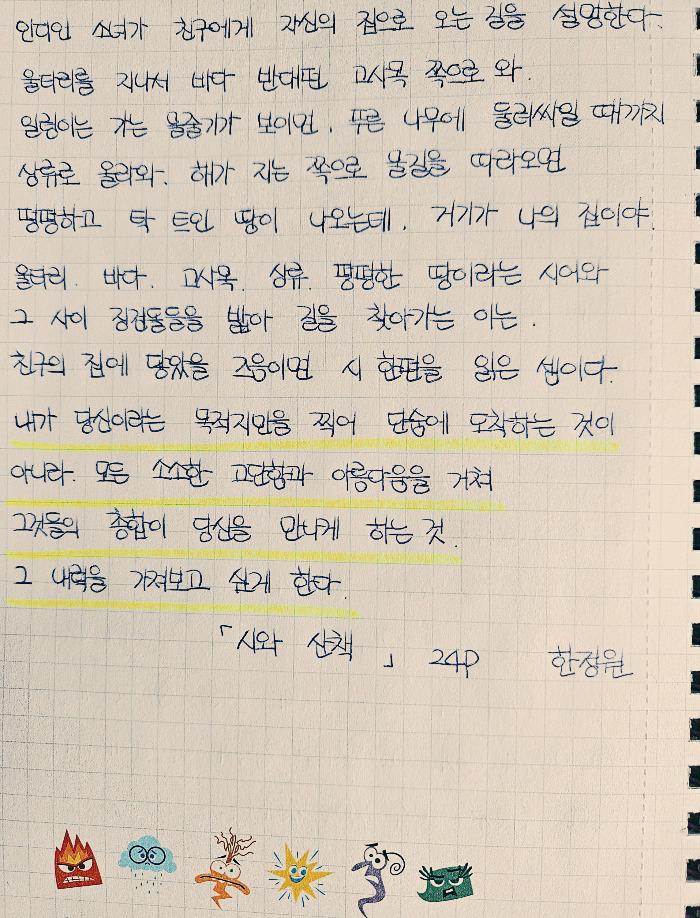 인디언 소녀가 친구에게 자신의 집으로 오는 길을 설명한다.
울타리를 지나서 바다 반대편 고사목 쪽으로 와.
일렁이는 가는 물줄기가 보이면, 푸른 나무에 둘러싸일 때까지
상류로 올라와. 해가 지는 쪽으로 물길을 따라오면
평평하고 탁 트인 땅이 나오는데, 거기가 나의 집이야.
울타리, 바다, 고사목, 상류, 평평한 땅이라는 시어와
그 사이 징검돌들을 밟아 길을 찾아가는 이는.
친구의 집에 닿았을 즈음이면 시 한편을 읽은 셈이다.
내가 당신이라는 목적지만을 찍어 단숨에 도착하는 것이
아니라. 모든 소소한 고단함과 아름다움을 거쳐
그것들의 총합이 당신을 만나게 하는 것.
그 내력을 가져보고 싶게 한다.
「시와 산책」 24p 한정원